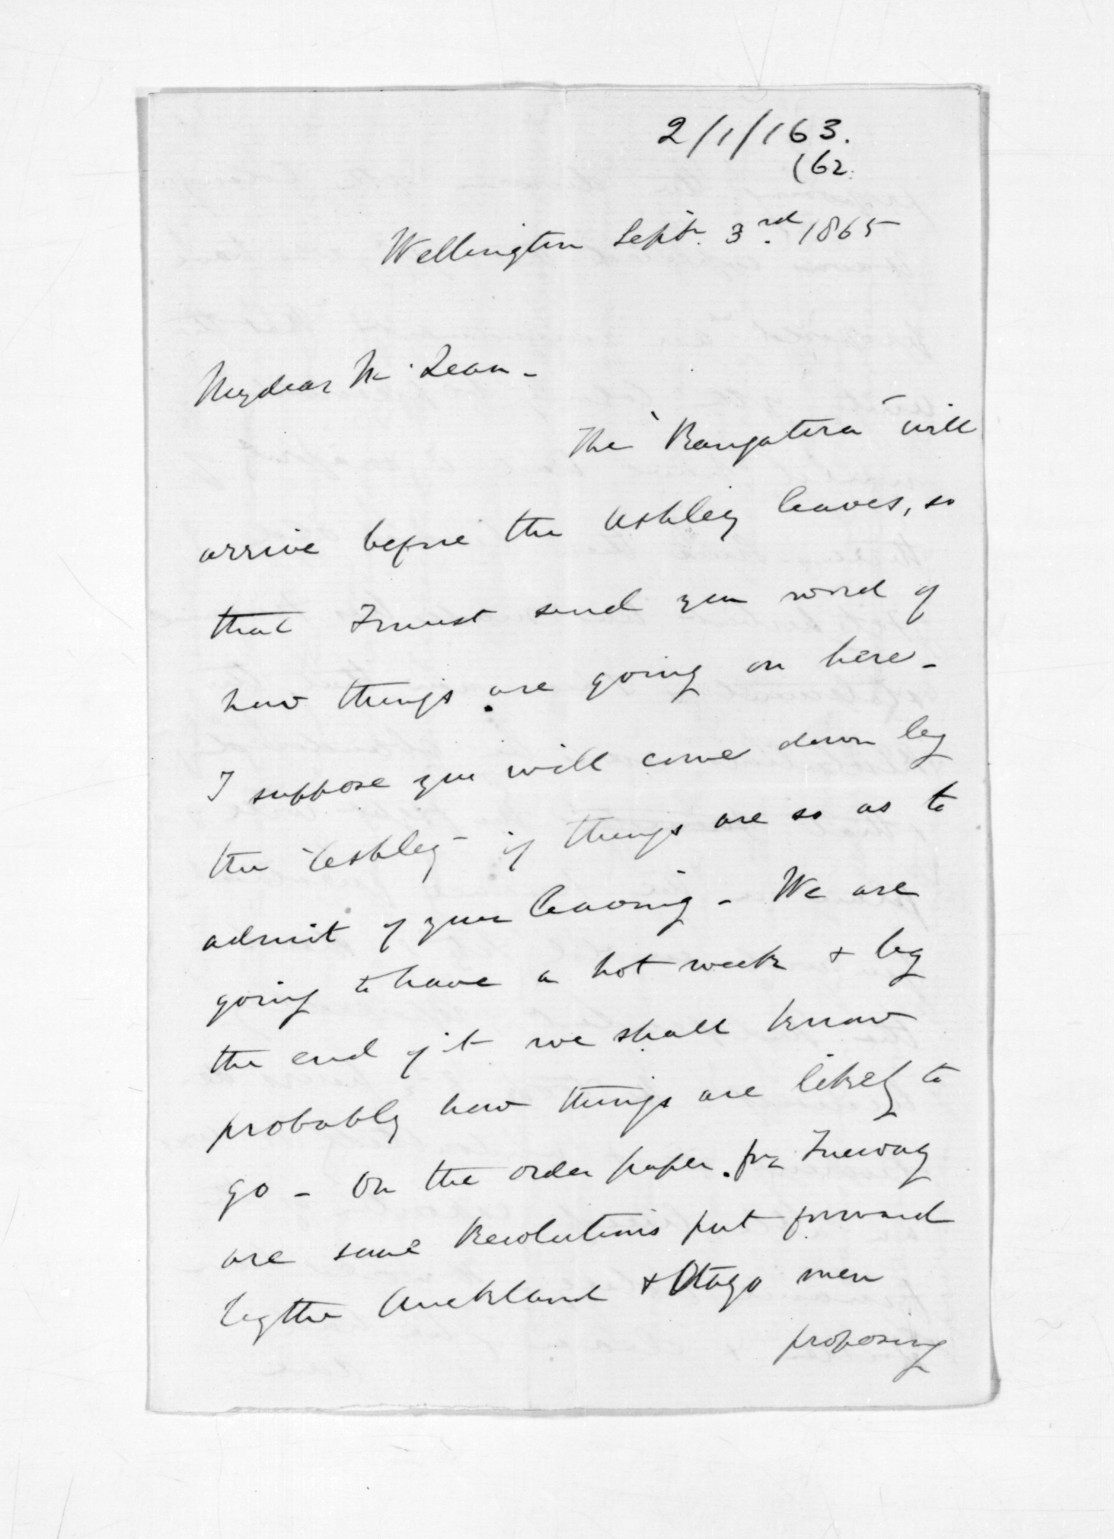 2/1/163.
(62.
Wellington Septr. 3rd. 1865
My dear McLean -
The "Rangatira" will
arrive before the Ashley leaves, so
that I must send you word of
how things are going on here -
I suppose you will come down by
the "Ashley" if things are so as to
admit of your leaving - We are
going to have a hot week & by
the end of it we shall know
probably how things are likely to
go - On the order paper for Tuesday
are some Resolutions put forward
by the Auckland & Otago men
proposing